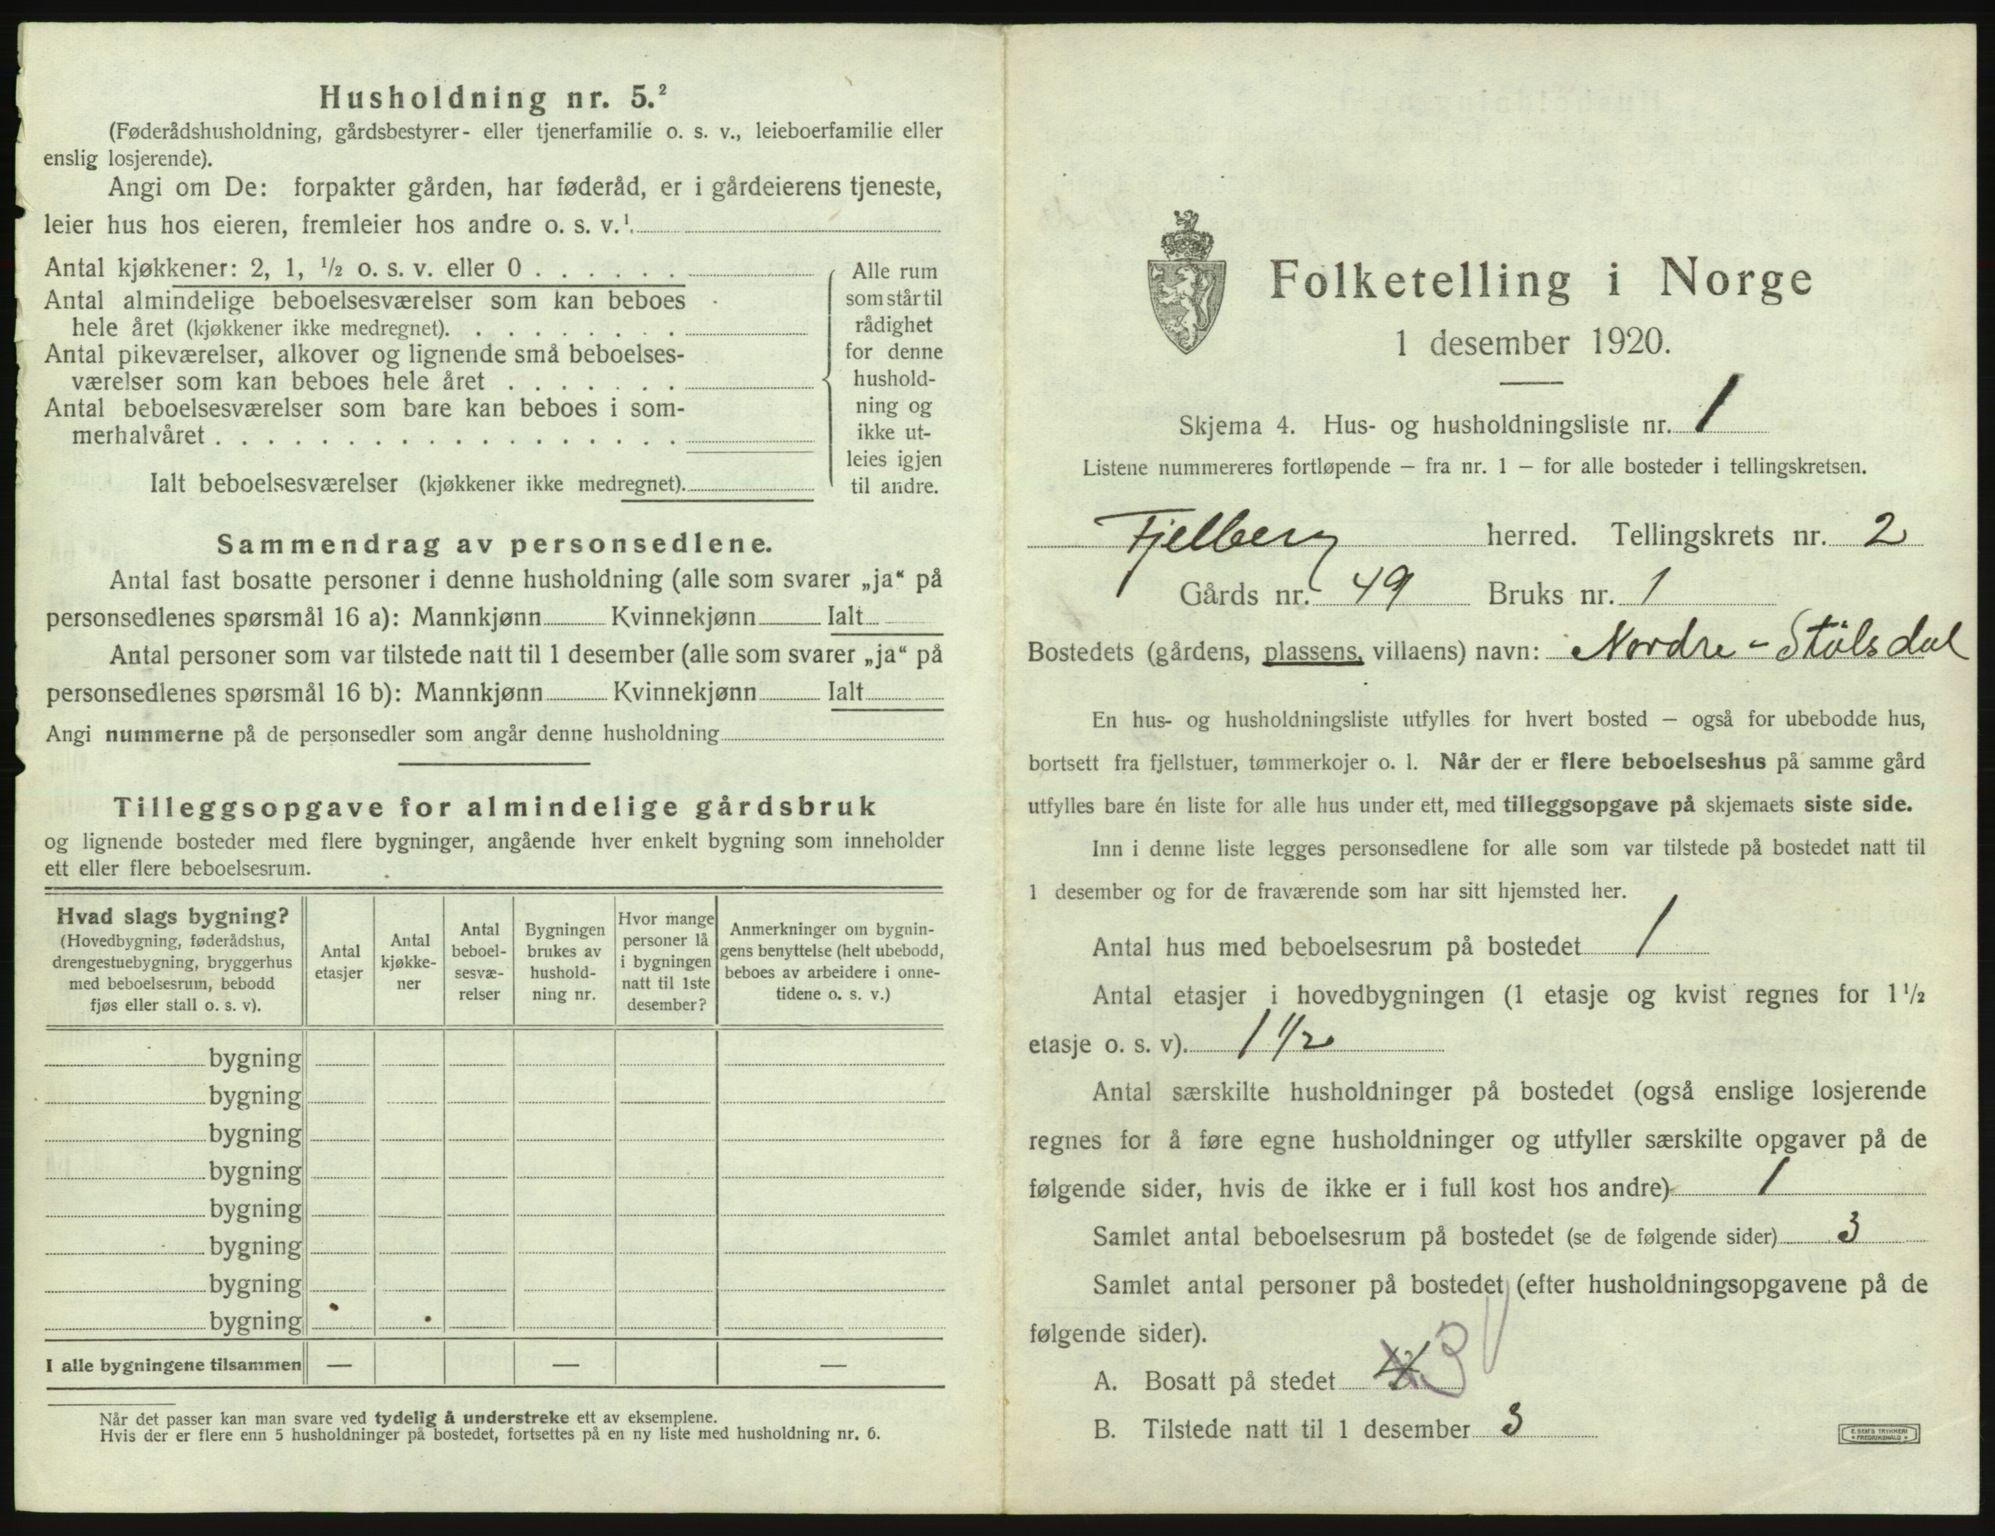 Husholdning nr. 5.²
(Føderådshusholdning, gårdsbestyrer- eller tjenerfamilie o. s. v., leieboerfamilie eller
enslig losjerende).
Angi om De: forpakter gården, har føderåd, er i gårdeierens tjeneste,
leier hus hos eieren, fremleier hos andre o. s. v.¹.
Antal kjøkkener: 2, 1, ½ o. s. v. eller 0 . . . . . .
Antal almindelige beboelsesværelser som kan beboes
hele året (kjøkkener ikke medregnet). . . . . . . . .
Antal pikeværelser, alkover og lignende små beboelses-
værelser som kan beboes hele året . . . . . . .
Antal beboelsesværelser som bare kan beboes i som-
merhalvåret . . . . . . . . . . . . . . . . . .
Ialt beboelsesværelser (kjøkkener ikke medregnet).
Alle rum
som står til
rådighet
for denne
hushold-
ning og
ikke ut-
leies igjen
til andre.
Sammendrag av personsedlene.
Antal fast bosatte personer i denne husholdning (alle som svarer „ja“ på
personsedlenes spørsmål 16 a): Mannkjønn Kvinnekjønn Ialt
Antal personer som var tilstede natt til 1 desember (alle som svarer „ja“ på
personsedlenes spørsmål 16 b): Mannkjønn Kvinnekjønn Ialt
Angi nummerne på de personsedler som angår denne husholdning
Tilleggsopgave for almindelige gårdsbruk
og lignende bosteder med flere bygninger, angående hver enkelt bygning som inneholder
ett eller flere beboelsesrum.
Hvad slags bygning?
(Hovedbygning, føderådshus,
drengestuebygning, bryggerhus
med beboelsesrum, bebodd
fjøs eller stall o. s. v).
Antal
etasjer
Antal
kjøkke-
ner
Antal
beboel-
sesvæ-
relser
Bygningen
brukes av
hushold-
ning nr.
Hvor mange
personer lå
i bygningen
natt til 1ste
desember?
Anmerkninger om bygnin-
gens benyttelse (helt ubebodd,
beboes av arbeidere i onne-
tidene o. s. v.)
bygning
bygning
bygning
bygning
bygning
bygning
bygning
bygning
I alle bygningene tilsammen — — —
Når det passer kan man svare ved tydelig å understreke ett av eksemplene.
Hvis der er flere enn 5 husholdninger på bostedet, fortsettes på en ny liste med husholdning nr. 6.
Folketelling i Norge
1 desember 1920.
Skjema 4. Hus- og husholdningsliste nr. 1
Listene nummereres fortløpende – fra nr. 1 – for alle bosteder i tellingskretsen.
Fjelberg herred. Tellingskrets nr. 2
Gårds nr. 49 Bruks nr. 1
Bostedets (gårdens, plassens, villaens) navn: Nordre-Stølsdal
En hus- og husholdningsliste utfylles for hvert bosted – også for ubebodde hus,
bortsett fra fjellstuer, tømmerkojer o. l. Når der er flere beboelseshus på samme gård
utfylles bare én liste for alle hus under ett, med tilleggsopgave på skjemaets siste side.
Inn i denne liste legges personsedlene for alle som var tilstede på bostedet natt til
1 desember og for de fraværende som har sitt hjemsted her.
Antal hus med beboelsesrum på bostedet 1
Antal etasjer i hovedbygningen (1 etasje og kvist regnes for 1½
etasje o. s. v). 1 1/2
Antal særskilte husholdninger på bostedet (også enslige losjerende
regnes for å føre egne husholdninger og utfyller særskilte opgaver på de
følgende sider, hvis de ikke er i full kost hos andre) 1
Samlet antal beboelsesrum på bostedet (se de følgende sider) 3
Samlet antal personer på bostedet (efter husholdningsopgavene på de
følgende sider).
A. Bosatt på stedet 3
B. Tilstede natt til 1 desember 3
E. SEM'S TRYKKERI
FREDRIKSHALD